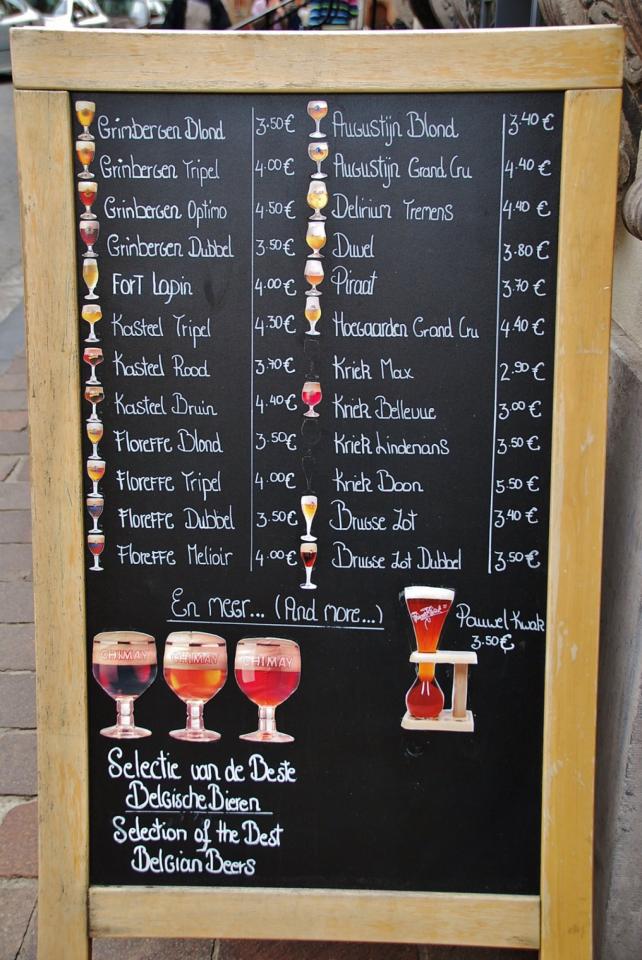 Grinbergen Blond 3.50€
Grinbergen Tripel 4.00€
Grinbergen Optimo 4.50€
Grinbergen Dubbel 3.50€
Fort Lapin 4.00€
Kasteel Tripel 4.30€
Kasteel Rood 3.70€
Kasteel Bruin 4.40€
Floreffe Blond 3.50€
Floreffe Tripel 4.00€
Floreffe Dubbel 3.50€
Floreffe Melioir 4.00€
Augustijn Blond 3.40€
Augustijn Grand Cru 4.40€
Delirium Tremens 4.40 €
Duvel 3.80€
Piraat 3.70€
Hoegaarden Grand Cru 4.40€
Kriek Max 2.90€
Kriek Bellevue 3.00€
Kriek Lindemans 3.50€
Kriek Boon 5.50€
Brugse Zot 3.40€
Brugse Zot Dubbel 3.50€
En meer... (And more...)
Pauwel-Kwak
3.50€
CHIMAY CHIMAY CHIMAY
Selectie van de Beste
Belgische Bieren
Selection of the Best
Belgian Beers